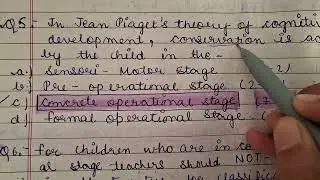 Q5:- In Jean Piaget's theory of cognitiv
development, conservation is ac
by the child in the -
a) Sensori-Motor stage 2)
b) Pre-operational stage (2
c) Concrete operational stage (7
d) formal operational stage (
Q6:- for children who are in co
al stage teachers should NOT-
for classific